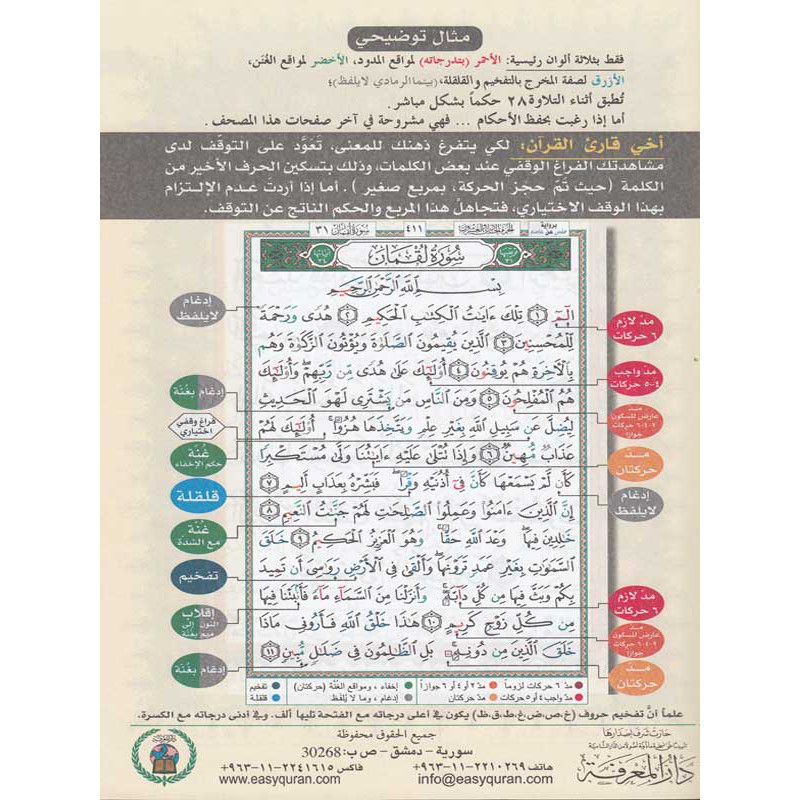 مثال توضيحي
فقط بثلاثة ألوان رئيسية: الأحمر (بتدرجاته) لمواقع المدود، الأخضر لمواقع الغُنَن،
الأزرق لصفة المخرج بالتفخيم والقلقلة، (بينما الرمادي لا يلفظ)؛
تُطبق أثناء التلاوة ٢٨ حكماً بشكل مباشر.
أما إذا رغبت بحفظ الأحكام ... فهي مشروحة في آخر صفحات هذا المصحف.
أخي قارئ القرآن: لكي يتفرغ ذهنك للمعنى، تَعَوَّد على التوقف لدى
مشاهدتك الفراغ الوقفي عند بعض الكلمات، وذلك بتسكين الحرف الأخير من
الكلمة (حيث تمّ حجز الحركة، بمربع صغير). أما إذا أردتَ عدم الإلتزام
بهذا الوقف الاختياري، فتجاهلْ هذا المربع والحكم الناتج عن التوقف.
سُورَةُ لُقْمَان ٣١
٤١١
سُورَةُ لُقْمَان
بِسْمِ اللَّهِ الرَّحْمَٰنِ الرَّحِيمِ
الٓمٓ ١ تِلْكَ ءَايَٰتُ الْكِتَٰبِ الْحَكِيمِ ٢ هُدًى وَرَحْمَةً
لِّلْمُحْسِنِينَ ٣ الَّذِينَ يُقِيمُونَ الصَّلَوٰةَ وَيُؤْتُونَ الزَّكَوٰةَ وَهُم
بِالْأَخِرَةِ هُمْ يُوقِنُونَ ٤ أُوْلَٰٓئِكَ عَلَىٰ هُدًى مِّن رَّبِّهِمْ وَأُوْلَٰٓئِكَ
هُمُ الْمُفْلِحُونَ ٥ وَمِنَ النَّاسِ مَن يَشْتَرِى لَهْوَ الْحَدِيثِ
لِيُضِلَّ عَن سَبِيلِ اللَّهِ بِغَيْرِ عِلْمٍ وَيَتَّخِذَهَا هُزُوًا أُوْلَٰٓئِكَ لَهُمْ
عَذَابٌ مُّهِينٌ ٦ وَإِذَا تُتْلَىٰ عَلَيْهِ ءَايَٰتُنَا وَلَّىٰ مُسْتَكْبِرًا
كَأَن لَّمْ يَسْمَعْهَا كَأَنَّ فِىٓ أُذُنَيْهِ وَقْرًا فَبَشِّرْهُ بِعَذَابٍ أَلِيمٍ ٧
إِنَّ الَّذِينَ ءَامَنُوا وَعَمِلُوا الصَّٰلِحَٰتِ لَهُمْ جَنَّٰتُ النَّعِيمِ ٨
خَٰلِدِينَ فِيهَا وَعْدَ اللَّهِ حَقًّا وَهُوَ الْعَزِيزُ الْحَكِيمُ ٩ خَلَقَ
السَّمَٰوَٰتِ بِغَيْرِ عَمَدٍ تَرَوْنَهَا وَأَلْقَىٰ فِى الْأَرْضِ رَوَٰسِىَ أَن تَمِيدَ
بِكُمْ وَبَثَّ فِيهَا مِن كُلِّ دَآبَّةٍ وَأَنزَلْنَا مِنَ السَّمَآءِ مَآءً فَأَنۢبَتْنَا فِيهَا
مِن كُلِّ زَوْجٍ كَرِيمٍ ١٠ هَٰذَا خَلْقُ اللَّهِ فَأَرُونِى مَاذَا
خَلَقَ الَّذِينَ مِن دُونِهِ بَلِ الظَّٰلِمُونَ فِى ضَلَٰلٍ مُّبِينٍ ١١
مدّ لازم
٦ حركات
مدّ واجب
٤-٥ حركات
مدّ
عارض للسكون
٢-٤-٦ حركات
جوازاً
مدّ
حركتان
إدغام
لا يلفظ
مدّ لازم
٦ حركات
مدّ
عارض للسكون
٢-٤-٦ حركات
جوازاً
مدّ
حركتان
إدغام
لا يلفظ
إدغام بغُنة
فراغ وقفي
اختياري
غُنة
حكم الإخفاء
قلقلة
غُنة
مع الشدة
تفخيم
إقلاب
النون إلى
ميم بغنة
إدغام بغُنة
مدّ ٦ حركات لزوماً
مدّ ٢ أو ٤ أو ٦ جوازاً
إخفاء، ومواقع الغُنّة (حركتان)
تفخيم
مدّ واجب ٤ أو ٥ حركات
مدّ حركتان
إدغام، وما لا يُلفظ
قلقلة
علماً أنَّ تفخيم حروف (خ،ص،ض،غ،ط،ق،ظ) يكون في أعلى درجاته مع الفتحة تليها ألف. وفي أدنى درجاته مع الكسرة.
جميع الحقوق محفوظة
سورية - دمشق - ص ب: 30268
هاتف ٢٢١٠٢٦٩-١١-٩٦٣+ فاكس ٢٢٤١٦١٥-١١-٩٦٣+
info@easyquran.com www.easyquran.com
دار المعرفة